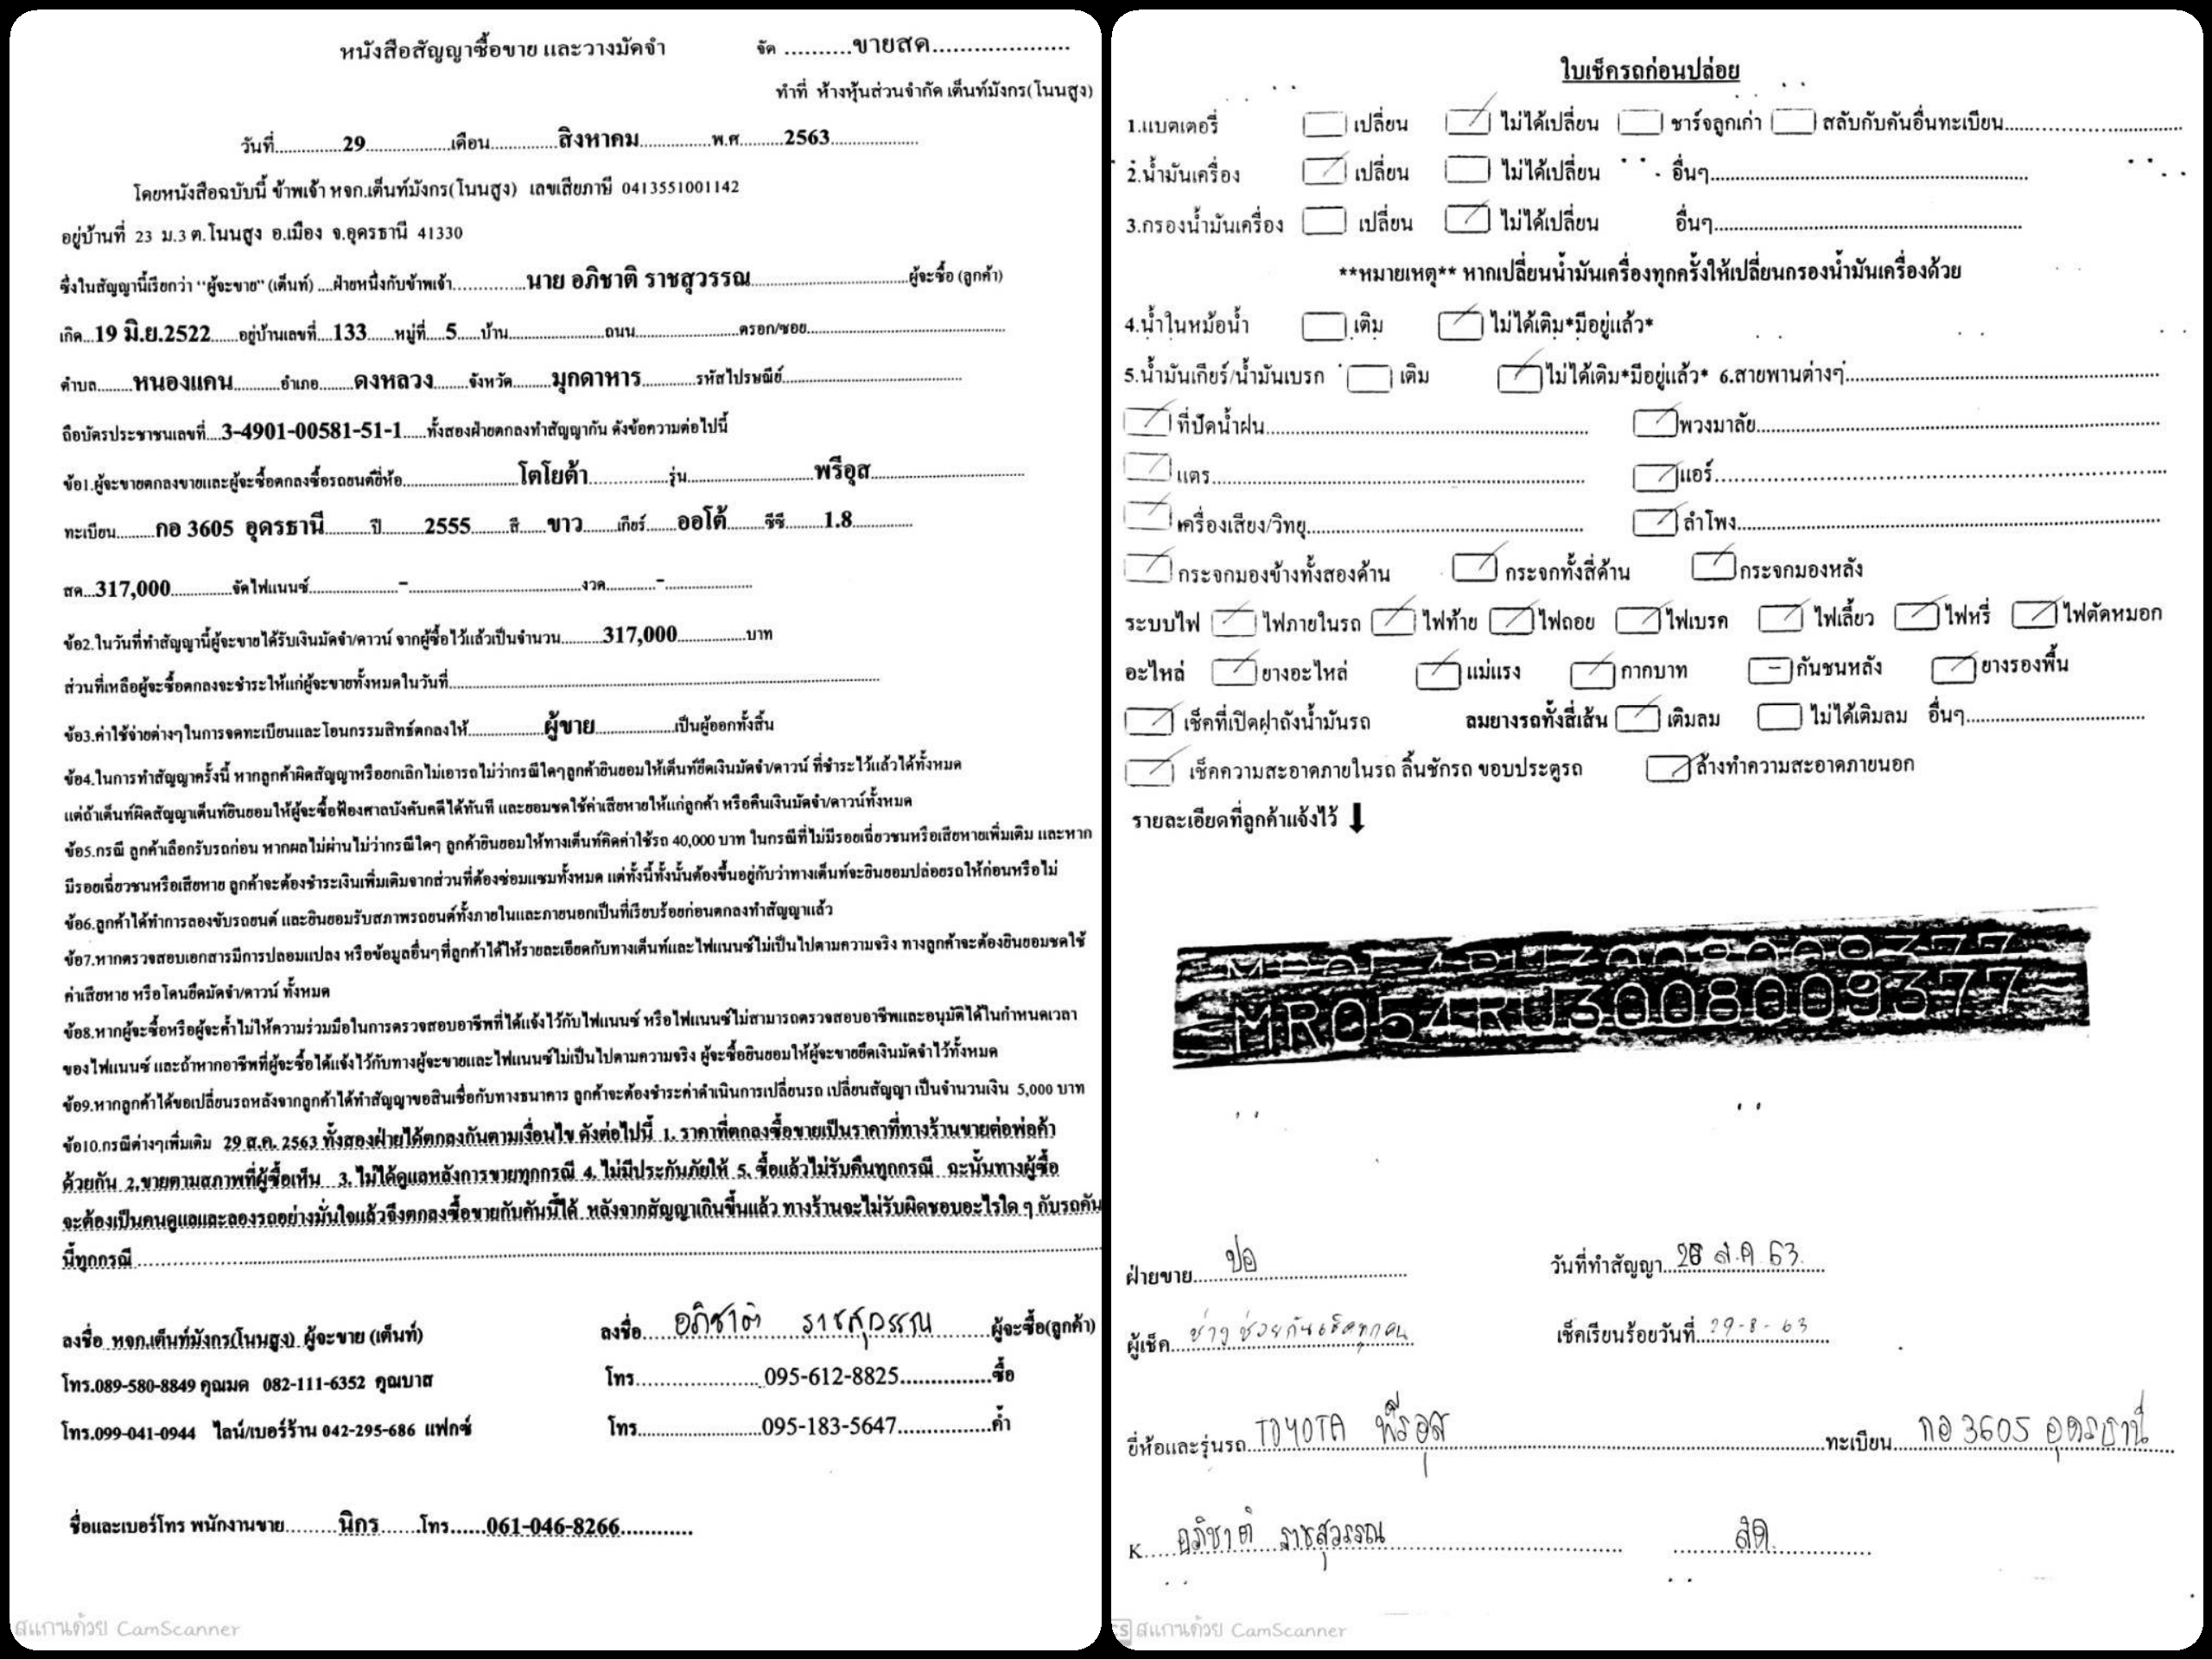 หนังสือสัญญาซื้อขาย และวางมัดจำ จัด ..........ขายสด....................
ทำที่ ห้างหุ้นส่วนจำกัด เต็นท์มังกร(โนนสูง)
วันที่..............29..................เดือน..............สิงหาคม...............พ.ศ..........2563..................
โดยหนังสือฉบับนี้ ข้าพเจ้า หจก.เต็นท์มังกร(โนนสูง) เลขเสียภาษี 0413551001142
อยู่บ้านที่ 23 ม.3 ต.โนนสูง อ.เมือง จ.อุดรธานี 41330
ซึ่งในสัญญานี้เรียกว่า "ผู้จะขาย" (เต็นท์) ....ฝ่ายหนึ่งกับข้าพเจ้า...............นาย อภิชาติ ราชสุวรรณ...............ผู้จะซื้อ (ลูกค้า)
เกิด...19 มิ.ย.2522......อยู่บ้านเลขที่....133......หมู่ที่.....5.....บ้าน....................ถนน....................ตรอก/ซอย....................
ตำบล........หนองแคน..........อำเภอ........ดงหลวง........จังหวัด........มุกดาหาร............รหัสไปรษณีย์....................
ถือบัตรประชาชนเลขที่....3-4901-00581-51-1.....ทั้งสองฝ่ายตกลงทำสัญญากัน ดังข้อความต่อไปนี้
ข้อ1.ผู้จะขายตกลงขายและผู้จะซื้อตกลงซื้อรถยนต์ยี่ห้อ....................โตโยต้า...............รุ่น....................พรีอุส....................
ทะเบียน.........กอ 3605 อุดรธานี..........ปี..........2555........สี......ขาว.......เกียร์......ออโต้........ซีซี........1.8..............
สด...317,000.............จัดไฟแนนซ์....................-....................งวด..........-....................
ข้อ2.ในวันที่ทำสัญญานี้ผู้จะขายได้รับเงินมัดจำ/ดาวน์ จากผู้ซื้อไว้แล้วเป็นจำนวน.........317,000...............บาท
ส่วนที่เหลือผู้จะซื้อตกลงจะชำระให้แก่ผู้จะขายทั้งหมดในวันที่....................
ข้อ3.ค่าใช้จ่ายต่างๆในการจดทะเบียนและโอนกรรมสิทธ์ตกลงให้.................ผู้ขาย.................เป็นผู้ออกทั้งสิ้น
ข้อ4.ในการทำสัญญาครั้งนี้ หากลูกค้าผิดสัญญาหรือยกเลิกไม่เอารถไม่ว่ากรณีใดๆลูกค้ายินยอมให้เต็นท์ยึดเงินมัดจำ/ดาวน์ ที่ชำระไว้แล้วได้ทั้งหมด
แต่ถ้าเต็นท์ผิดสัญญาเต็นท์ยินยอมให้ผู้จะซื้อฟ้องศาลบังคับคดีได้ทันที และยอมชดใช้ค่าเสียหายให้แก่ลูกค้า หรือคืนเงินมัดจำ/ดาวน์ทั้งหมด
ข้อ5.กรณี ลูกค้าเลือกรับรถก่อน หากผลไม่ผ่านไม่ว่ากรณีใดๆ ลูกค้ายินยอมให้ทางเต็นท์คิดค่าใช้รถ 40,000 บาท ในกรณีที่ไม่มีรอยเฉี่ยวชนหรือเสียหายเพิ่มเติม และหาก
มีรอยเฉี่ยวชนหรือเสียหาย ลูกค้าจะต้องชำระเงินเพิ่มเติมจากส่วนที่ต้องซ่อมแซมทั้งหมด แต่ทั้งนี้ทั้งนั้นต้องขึ้นอยู่กับว่าทางเต็นท์จะยินยอมปล่อยรถให้ก่อนหรือไม่
ข้อ6.ลูกค้าได้ทำการลองขับรถยนต์ และยินยอมรับสภาพรถยนต์ทั้งภายในและภายนอกเป็นที่เรียบร้อยก่อนตกลงทำสัญญาแล้ว
ข้อ7.หากตรวจสอบเอกสารมีการปลอมแปลง หรือข้อมูลอื่นๆที่ลูกค้าได้ให้รายละเอียดกับทางเต็นท์และไฟแนนซ์ไม่เป็นไปตามความจริง ทางลูกค้าจะต้องยินยอมชดใช้
ค่าเสียหาย หรือโดนยึดมัดจำ/ดาวน์ ทั้งหมด
ข้อ8.หากผู้จะซื้อหรือผู้จะค้ำไม่ให้ความร่วมมือในการตรวจสอบอาชีพที่ได้แจ้งไว้กับไฟแนนซ์ หรือไฟแนนซ์ไม่สามารถตรวจสอบอาชีพและอนุมัติได้ในกำหนดเวลา
ของไฟแนนซ์ และถ้าหากอาชีพที่ผู้จะซื้อได้แจ้งไว้กับทางผู้จะขายและไฟแนนซ์ไม่เป็นไปตามความจริง ผู้จะซื้อยินยอมให้ผู้จะขายยึดเงินมัดจำไว้ทั้งหมด
ข้อ9.หากลูกค้าได้ขอเปลี่ยนรถหลังจากลูกค้าได้ทำสัญญาขอสินเชื่อกับทางธนาคาร ลูกค้าจะต้องชำระค่าดำเนินการเปลี่ยนรถ เปลี่ยนสัญญา เป็นจำนวนเงิน 5,000 บาท
ข้อ10.กรณีต่างๆเพิ่มเติม 29 ส.ค. 2563 ทั้งสองฝ่ายได้ตกลงกันตามเงื่อนไข ดังต่อไปนี้ 1. ราคาที่ตกลงซื้อขายเป็นราคาที่ทางร้านขายต่อพ่อค้า
ด้วยกัน 2.ขายตามสภาพที่ผู้ซื้อเห็น 3. ไม่ได้ดูแลหลังการขายทุกกรณี 4. ไม่มีประกันภัยให้ 5. ซื้อแล้วไม่รับคืนทุกกรณี ฉะนั้นทางผู้ซื้อ
จะต้องเป็นคนดูแลและลองรถอย่างมั่นใจแล้วจึงตกลงซื้อขายกับคันนี้ได้ หลังจากสัญญาเกินขึ้นแล้ว ทางร้านจะไม่รับผิดชอบอะไรใด ๆ กับรถคัน
นี้ทุกกรณี....................
ลงชื่อ หจก.เต็นท์มังกร(โนนสูง) ผู้จะขาย (เต็นท์) ลงชื่อ.....อภิชาติ ราชสุวรรณ.........ผู้จะซื้อ(ลูกค้า)
โทร.089-580-8849 คุณมด 082-111-6352 คุณบาส โทร....................095-612-8825...............ซื้อ
โทร.099-041-0944 ไลน์/เบอร์ร้าน 042-295-686 แฟกซ์ โทร....................095-183-5647...............ค้ำ
ชื่อและเบอร์โทร พนักงานขาย.........นิกร.......โทร......061-046-8266............
สแกนด้วย CamScanner
ใบเช็ครถก่อนปล่อย
1.แบตเตอรี่ เปลี่ยน ไม่ได้เปลี่ยน ชาร์จลูกเก่า สลับกับคันอื่นทะเบียน....................
2.น้ำมันเครื่อง เปลี่ยน ไม่ได้เปลี่ยน อื่นๆ....................
3.กรองน้ำมันเครื่อง เปลี่ยน ไม่ได้เปลี่ยน อื่นๆ....................
**หมายเหตุ** หากเปลี่ยนน้ำมันเครื่องทุกครั้งให้เปลี่ยนกรองน้ำมันเครื่องด้วย
4.น้ำในหม้อน้ำ เติม ไม่ได้เติม*มีอยู่แล้ว*
5.น้ำมันเกียร์/น้ำมันเบรก เติม ไม่ได้เติม*มีอยู่แล้ว* 6.สายพานต่างๆ....................
ที่ปัดน้ำฝน.................... พวงมาลัย....................
แตร.................... แอร์....................
เครื่องเสียง/วิทยุ.................... ลำโพง....................
กระจกมองข้างทั้งสองด้าน กระจกทั้งสี่ด้าน กระจกมองหลัง
ระบบไฟ ไฟภายในรถ ไฟท้าย ไฟถอย ไฟเบรค ไฟเลี้ยว ไฟหรี่ ไฟตัดหมอก
อะไหล่ ยางอะไหล่ แม่แรง กากบาท กันชนหลัง ยางรองพื้น
เช็คที่เปิดฝาถังน้ำมันรถ ลมยางรถทั้งสี่เส้น เติมลม ไม่ได้เติมลม อื่นๆ....................
เช็คความสะอาดภายในรถ ลิ้นชักรถ ขอบประตูรถ ล้างทำความสะอาดภายนอก
รายละเอียดที่ลูกค้าแจ้งไว้
MR054RU3008009377
ฝ่ายขาย.....ปอ.................... วันที่ทำสัญญา..28 ส.ค 63.
ผู้เช็ค...ช่าง ช่วยกันเช็คทุกคน เช็คเรียบร้อยวันที่..29-8-63
ยี่ห้อและรุ่นรถ.TOYOTA พรีอุส....................ทะเบียน....กอ 3605 อุดรธานี
K.....อภิชาติ ราชสุวรรณ.................... ..........สด..........
CS สแกนด้วย CamScanner